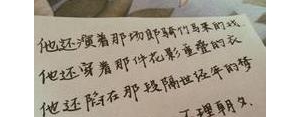 他还演着那场郎骑竹马来的戏
他还穿着那件花影重叠的衣
他还陷在那段隔世经年的梦
不理朝夕.